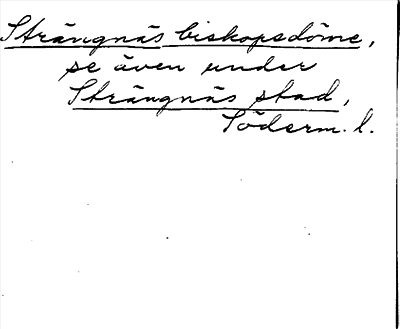 Strängnäs biskopsdöme,
se även under
Strängnäs stad,
Söderm. l.